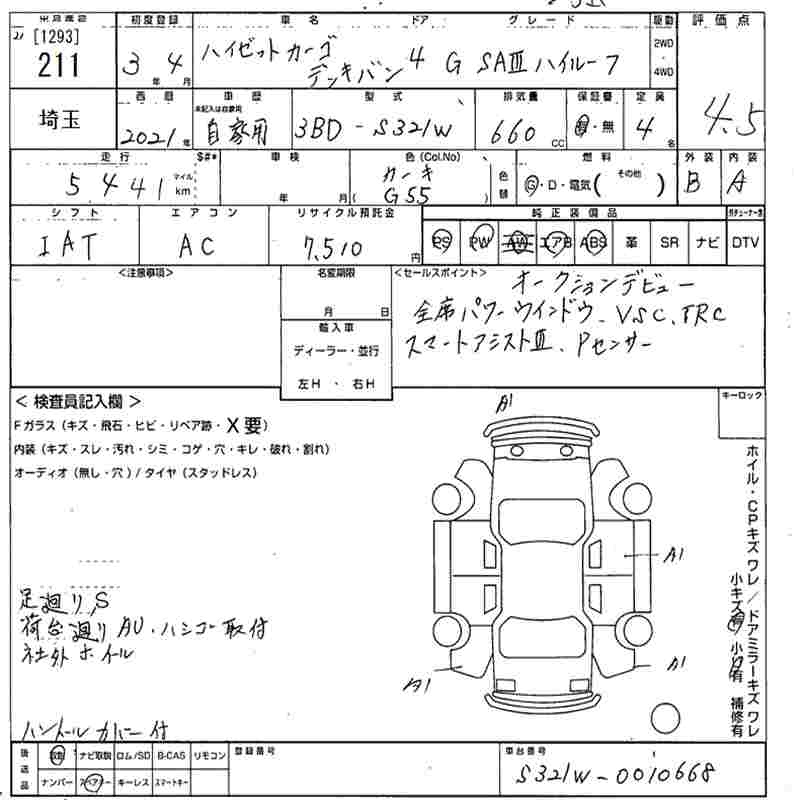 [1293]
211
埼玉
初度登録
3年 4月
車名 ドア グレード 駆動
ハイゼットカーゴ
デッキバン 4 G SAⅢ ハイルーフ
2WD
4WD
評価点
4.5
西暦 車歴 型式 排気量 保証書 定員
未記入は自家用
2021年 自家用 3BD-S321W 660cc 有・無 4名
走行 $#* 車検 色(Col.No) 色替 燃料 外装 内装
5,441 マイル km
年 月
カーキ
(G55)
G・D・電気( その他 )
B A
シフト エアコン リサイクル預託金 純正装備品
IAT AC 7,510円
PS PW AW エアB ABS 革 SR ナビ DTV
<注意事項> 名変期限 <セールスポイント>
月 日
輸入車
ディーラー・並行
左H ・ 右H
オークションデビュー
全席パワーウインドウ、VSC、TRC
スマートアシストⅢ、Pセンサー
<検査員記入欄> キーロック
Fガラス(キズ・飛石・ヒビ・リペア跡・X要)
内装(キズ・スレ・汚れ・シミ・コゲ・穴・キレ・破れ・割れ)
オーディオ(無し・穴)/タイヤ(スタッドレス)
A1
A1
A1
A1
ホイル・CPキズワレ/ドアミラーキズワレ
小キズ有 小凹有 補修有
足廻り,S
荷台廻りAU・ハシゴ取付
社外ホイル
ハンドルカバー付
後送品
取説 ナビ取説 ロム/SD B-CAS リモコン
ナンバー スペアキー キーレス スマートキー
登録番号
車台番号
S321W-0010668